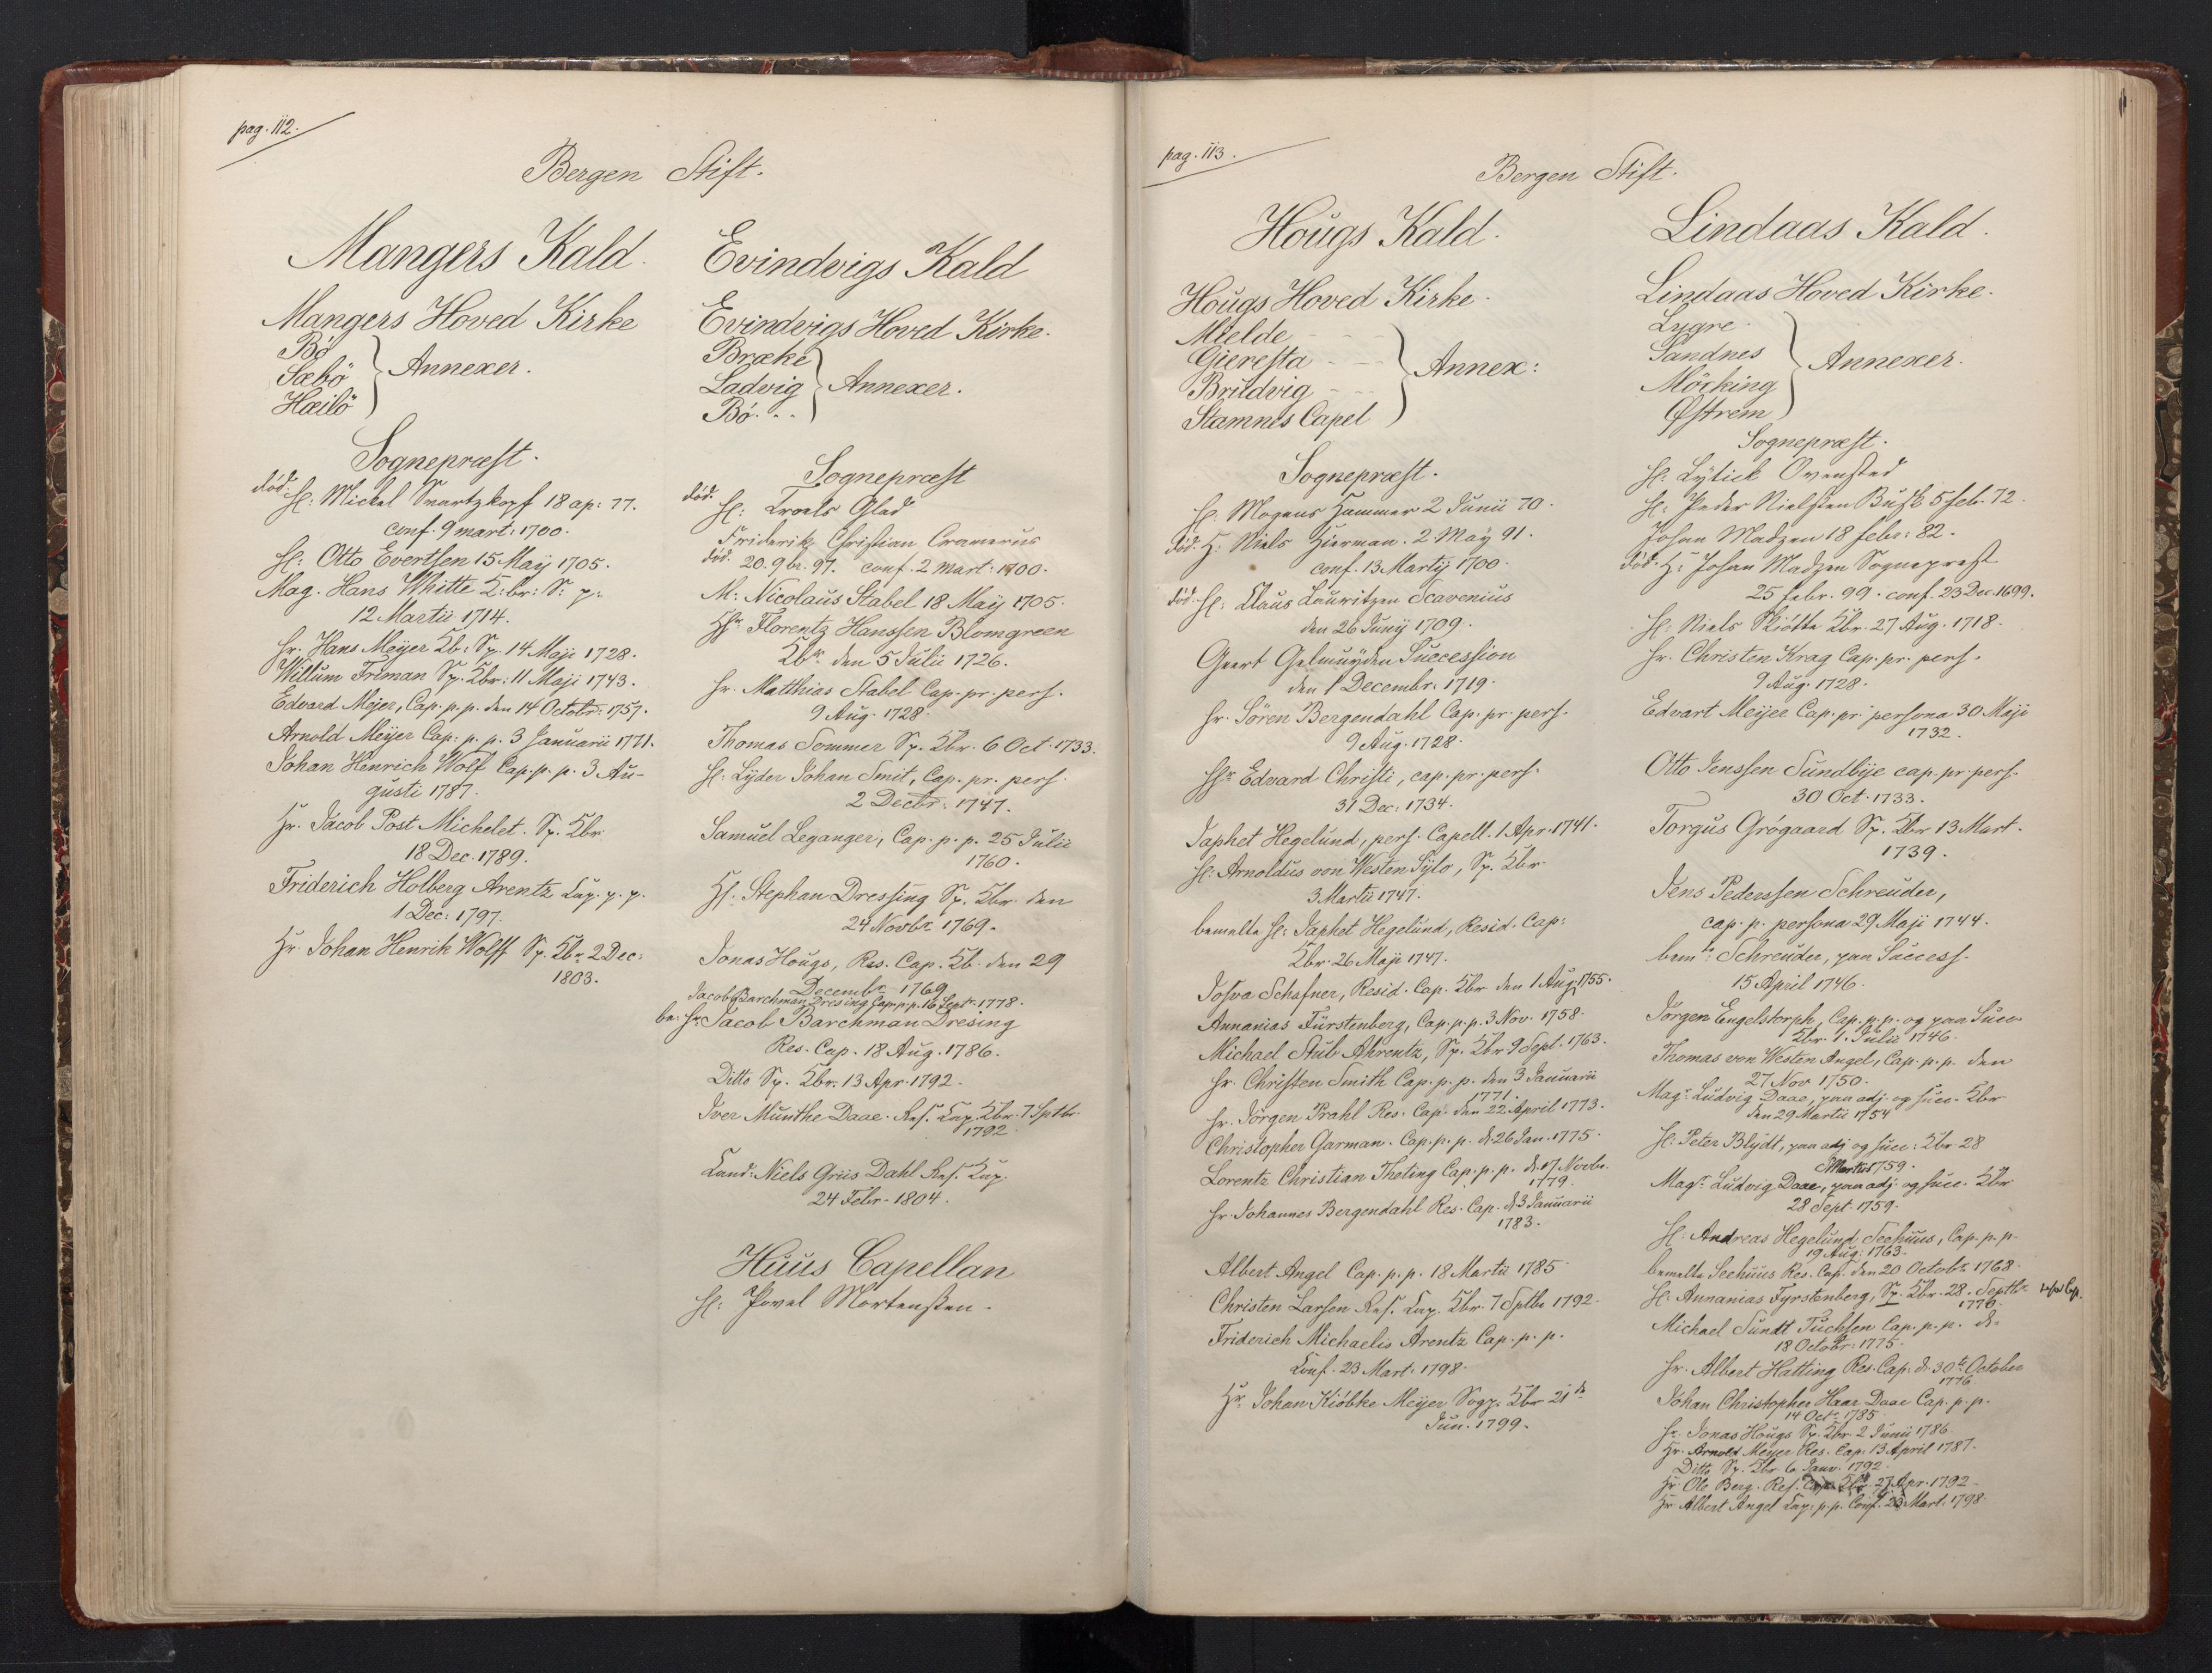 pag. 112.
Bergen Stift.
Mangers Kald.
Mangers Hoved Kirke
Bö
Sæbö
Hæilö
Annexer.
Sognepræst.
död. H: Mickel Svartzkopf 18 ap: 77.
conf. 9 mart: 1700.
H: Otto Evertsen 15 Maÿ 1705.
Mag. Hans Whitte K: br: S: p:
12 Martii 1714.
Hr. Hans Meÿer Kb: Sp. 14 Maji 1728.
Willum Friman Sp. Kbr: 11 Maji 1743.
Edvard Mejer, Cap. p. p. den 14 Octobr: 1757.
Arnold Meÿer Cap: p. p. 3 Januarii 1771.
Johan Henrich Wolf Cap. p. p. 3 Au-
gusti 1787.
Hr. Jacob Post Michelet. Sp. Kbr.
18 Dec. 1789.
Friderich Holberg Arentz Cap. p. p.
1 Dec: 1797.
Hr. Johan Henrik Wolff Sp. Kbr 2 Dec:
1803.
Evindvigs Kald
Evindvigs Hoved Kirke.
Brække
Ladvig
Bö. . .
Annexer.
Sognepræst
död. H: Troels Glad
Friderik Christian Cramerus
död. 20. 9br. 97. conf. 2 mart: 1700.
M: Nicolaus Stabel 18 Maÿ 1705.
Hr Florentz Hanssen Blomgreen
Kbr den 5 Julii 1726.
Hr. Matthias Stabel Cap. pr. pers.
9 Aug. 1728.
Thomas Sommer Sp. Kbr. 6 Oct. 1733.
H: Lÿder Johan Smit, Cap. pr. pers.
2 Decbr: 1747.
Samuel Leganger, Cap. p. p. 25 Julii
1760.
Hr. Stephan Dressing Sp. Kbr. den
24 Novbr 1769.
Jonas Hougs, Res. Cap. Kb. den 29
Decembr 1769.
Jacob Barchman Dresing Cap. p. p. 16 Septr. 1778.
be: Hr Jacob Barchman Dresing
Res. Cap. 18 Aug. 1786.
Ditto Sp. Kbr. 13 Apr. 1792.
Iver Munthe Daae. Res. Cap. Kbr. 7 Sptbr.
1792.
Cand: Niels Griis Dahl Res. Cap.
24 Febr. 1804.
Huus Capellan
H: Povel Mortensen.
pag. 113.
Bergen Stift.
Hougs Kald.
Hougs Hoved Kirke.
Mielde
Gieresta
Brudvig
Stamnes Capel
Annex:
Sognepræst.
H: Mogens Hammer 2 Junii 70.
död. H: Niels Hierman. 2 Maÿ 91.
conf. 13 Martij 1700.
död. H: Claus Lauritzen Scavenius
den 26 Junij 1709.
Geert Gelmuÿden Succession
den 1 Decembr: 1719.
Hr. Sören Bergendahl Cap. pr. pers.
9 Aug. 1728.
Hr Edvard Christi, cap. pr. pers.
31 Dec: 1734.
Japhet Hegelund, pers. Capell. 1 Apr. 1741.
H: Arnoldus von Westen Sylo, Sp. Kbr.
3 Martii 1747.
bemelte H: Japhet Hegelund, Resid. Cap:
Kbr. 26 Maji 1747.
Josva Schafner, Resid. Cap. Kbr den 1 Aug. 1755.
Annanias Fürstenberg, Cap. p. p. 3 Nov. 1758.
Michael Stub Ahrentz, Sp. Kbr 9 Sept. 1763.
Hr. Christen Smith Cap. p. p. den 3 Januarii
1771.
Hr. Jörgen Prahl Res. Cap. den 22 April 1773.
Christopher Garman. Cap. p. p. d. 26 Jan. 1775.
Lorentz Christian Theting Cap. p. p. d. 17 Novbr.
1779.
Hr. Johannes Bergendahl Res. Cap. d. 3 Januarii
1783.
Albert Angel Cap. p. p. 18 Martii 1785
Christen Larsen Res. Cap. Kbr. 7 Sptbr 1792.
Friderich Michaelis Arentz Cap. p. p.
Conf. 23 Mart. 1798.
Hr. Johan Kiöbke Meÿer Sogp. Kbr 21de
Jun. 1799.
Lindaas Kald.
Lindaas Hoved Kirke.
Lygre.
Sandnes
Mörking
Østrem
Annexer.
Sognepræst.
H: Lÿtick Ovensted
H: Peder Nielssen Busk 5 feb. 72.
Johan Madzen 18 febr: 82.
död. H: Johan Madzen Sognepræst
25 febr. 99. conf. 23 Dec. 1699.
H: Niels Skiötte Kbr. 27 Aug. 1718.
Hr. Christen Krag Cap. pr. pers.
9 Aug. 1728.
Edvart Meÿer Cap. pr. persona 30 Maji
1732.
Otto Jenssen Sundbÿe cap. pr. pers.
30 Oct. 1733.
Torgus Grögaard Sp. Kbr 13 Mart.
1739.
Jens Pederssen Schreuder,
cap. p. persona 29 Maji 1744.
bemte: Schreuder, paa Success.
15 April 1746.
Jörgen Engelstorph, Cap. p. p. og paa Succ.
Kbr. 1. Julii 1746.
Thomas von Westen Angel, Cap. p. p. den
27 Nov 1750.
Magr. Ludvig Daae, paa adj. og succ. Kbr
den 29 Martii 1754
H: Peter Blÿdt, paa adj og succ: Kbr 28
Martii 1759.
Magr. Ludvig Daae, paa adj. og succ. Kbr
28 Sept. 1759.
H: Andreas Hegelund Seehuus, Cap. p. p.
19 Aug: 1763.
bemelte Seehuus Res. Cap. den 20 Octobr. 1768.
H: Annanias Fyrstenberg, Sp. Kbr. 28. Septbr.
1770.
Michael Sundt Tuchsen Cap. p. p. d.
18 Octobr. 1775.
Hr. Albert Hatting Res. Cap. d. 30te October
1776
Johan Christopher Haar Daae Cap. p. p.
14 Oct. 1785
Hr. Jonas Hougs Sp. Kbr 2 Junii 1786.
Hr. Arnold Meÿer Res. Cap. 13 April 1787.
Ditto Sp. Kbr 6 Janv. 1792.
Hr Ole Berg. Res. Cap. Kbr 27 Apr. 1792.
Hr Albert Angel Cap. p. p. Conf. 23 Mart. 1798.